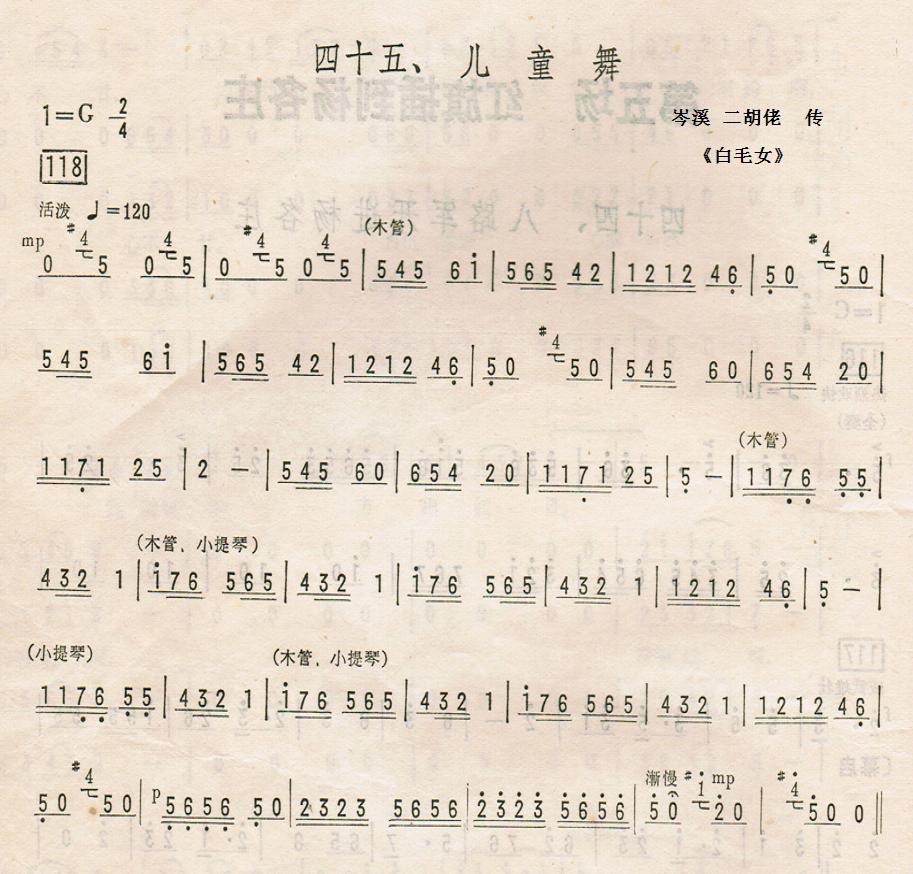 四十五、儿童舞
1=G 2/4
岑溪 二胡佬 传
118
《白毛女》
活泼 ♩=120
(木管)
mp #4 4 #4 4 #4
0 5 0 5 | 0 5 0 5 | 545 6i | 565 42 | 1212 46 | 50 50 |
#4
545 6i | 565 42 | 1212 46 | 50 50 | 545 60 | 654 20 |
(木管)
1171 25 | 2 － | 545 60 | 654 20 | 1171 25 | 5 － | 1176 55 |
(木管，小提琴)
432 1 | i76 565 | 432 1 | i76 565 | 432 1 | 1212 46 | 5 － |
(小提琴) (木管，小提琴)
1176 55 | 432 1 | i76 565 | 432 1 | i76 565 | 432 1 | 1212 46 |
#4 p 渐慢 #1 mp #4
50 50 | 5656 50 | 2323 5656 | 2323 5656 | 50 20 | 50 0 ‖